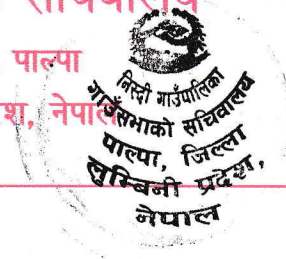 सचिवालय
पाल्पा
श, नेपाल
निस्दी गाउँपालिका
गाउँसभाको सचिवालय
पाल्पा, जिल्ला
लुम्बिनी प्रदेश,
नेपाल